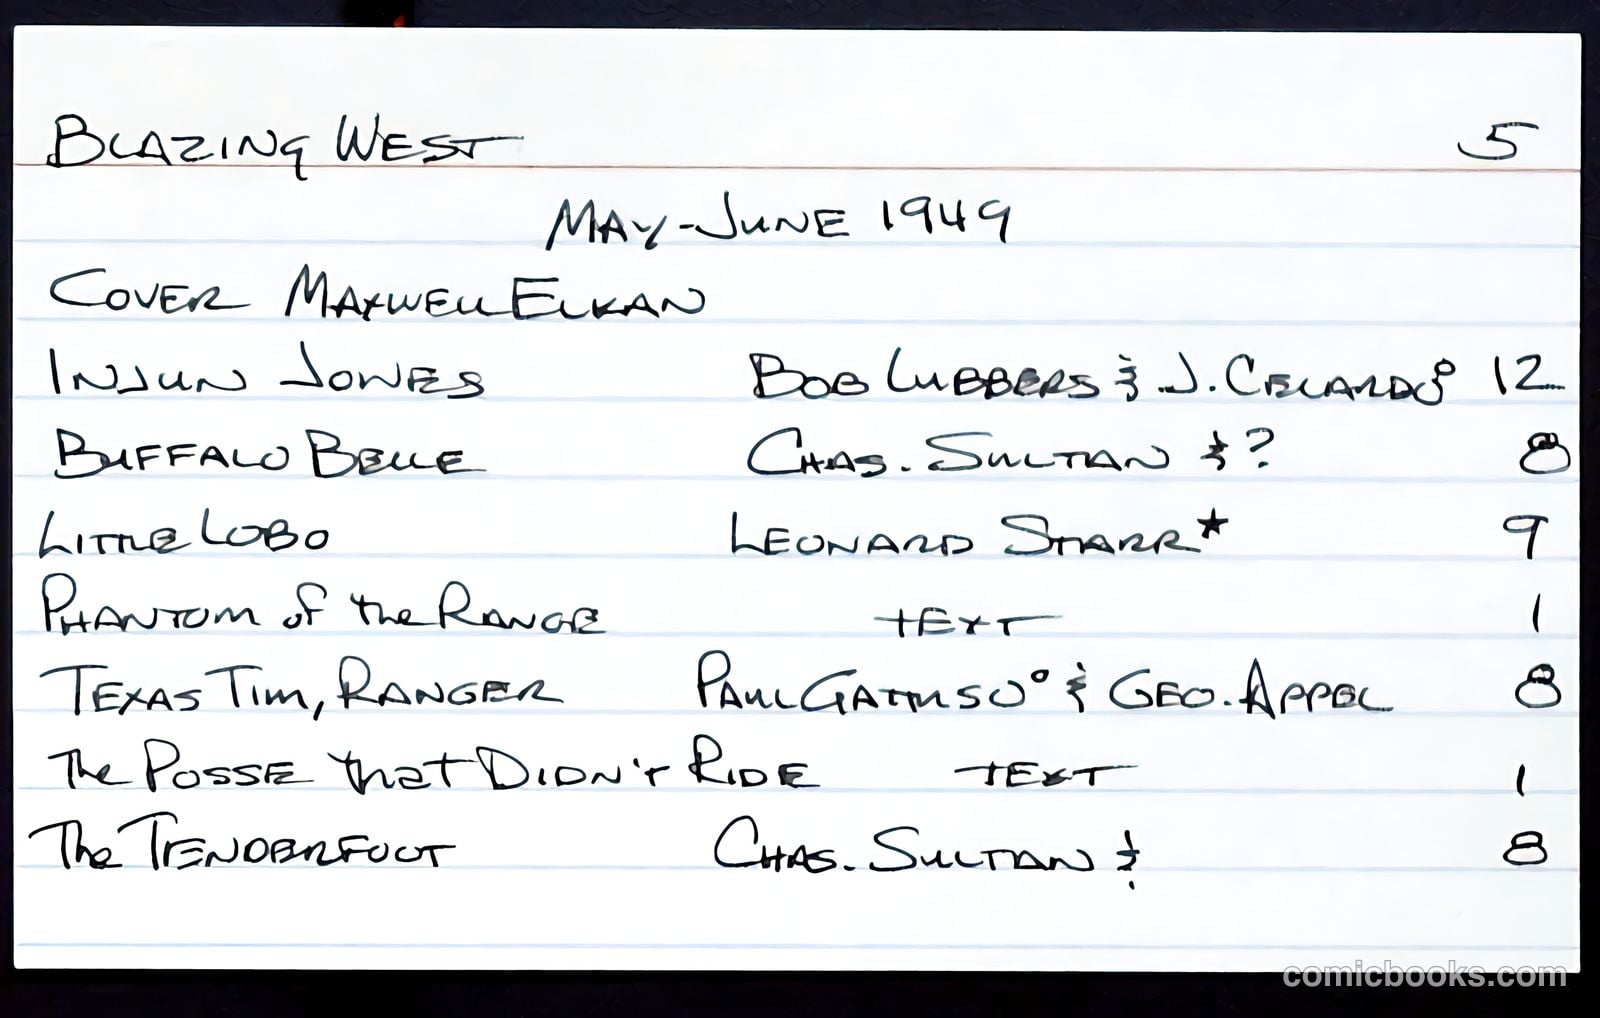 BLAZING WEST 5
MAY-JUNE 1949
COVER MAXWELL ELKAN
INJUN JONES BOB LUBBERS & J. CELARDO° 12
BUFFALO BELLE CHAS. SULTAN & ? 8
LITTLE LOBO LEONARD STARR★ 9
PHANTOM of the RANGE TEXT 1
TEXAS TIM, RANGER PAUL GATTUSO° & GEO. APPEL 8
The POSSE that DIDN'T RIDE TEXT 1
The TENDERFOOT CHAS. SULTAN & 8
comicbooks.com